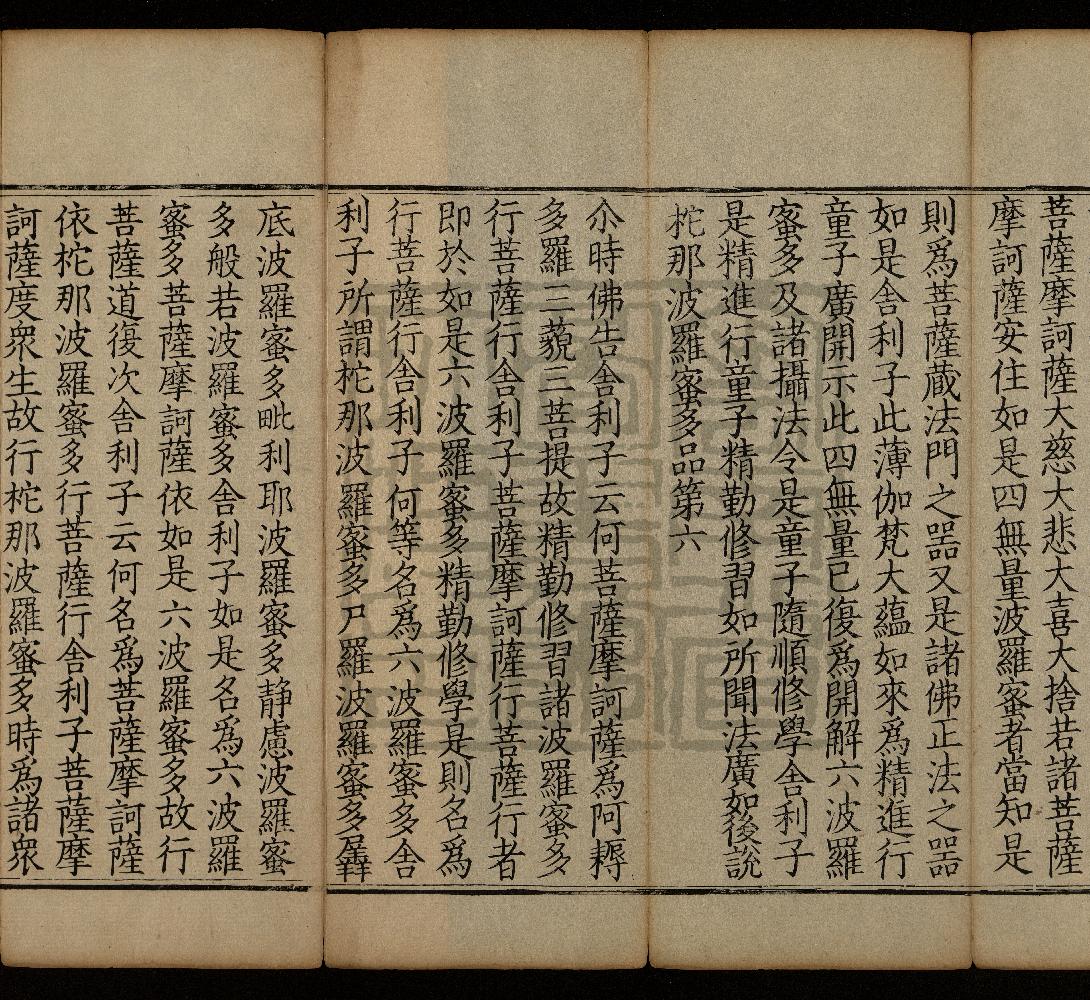 菩薩摩訶薩大慈大悲大喜大捨若諸菩薩
摩訶薩安住如是四無量波羅蜜者當知是
則爲菩薩藏法門之器又是諸佛正法之器
如是舍利子此薄伽梵大蘊如來爲精進行
童子廣開示此四無量已復爲開解六波羅
蜜多及諸攝法令是童子隨順修學舍利子
是精進行童子精勤修習如所聞法廣如後說
柁那波羅蜜多品第六
尒時佛告舍利子云何菩薩摩訶薩爲阿耨
多羅三藐三菩提故精勤修習諸波羅蜜多
行菩薩行舍利子菩薩摩訶薩行菩薩行者
即於如是六波羅蜜多精勤修學是則名爲
行菩薩行舍利子何等名爲六波羅蜜多舍
利子所謂柁那波羅蜜多尸羅波羅蜜多羼
底波羅蜜多毗利耶波羅蜜多静慮波羅蜜
多般若波羅蜜多舍利子如是名爲六波羅
蜜多菩薩摩訶薩依如是六波羅蜜多故行
菩薩道復次舍利子云何名爲菩薩摩訶薩
依柁那波羅蜜多行菩薩行舍利子菩薩摩
訶薩度衆生故行柁那波羅蜜多時爲諸衆